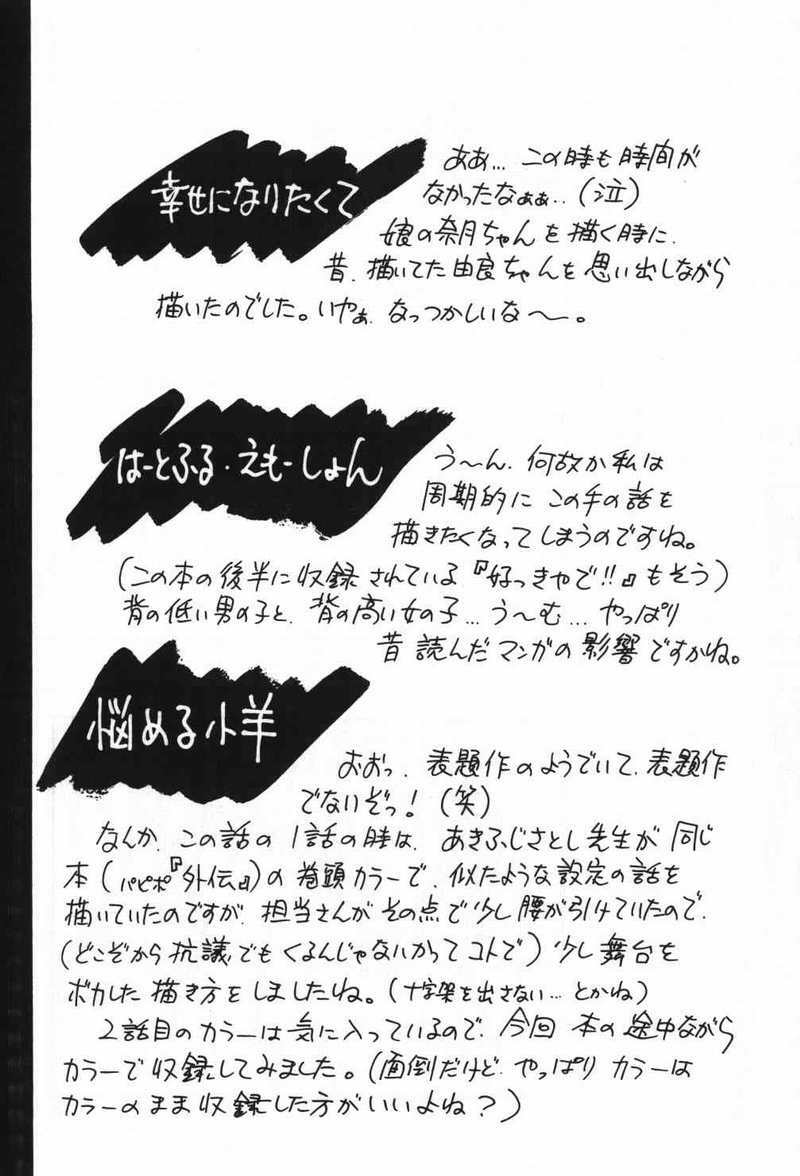 幸せになりたくて
ああ… この時も時間が
なかったなぁぁ‥(泣)
娘の奈月ちゃんを描く時に、
昔、描いてた由良ちゃんを思い出しながら
描いたのでした。いやぁ、なっつかしいな〜。
はーとふる・えもーしょん
う〜ん、何故か私は
周期的にこの手の話を
描きたくなってしまうのですね。
(この本の後半に収録されている『好っきゃで!!』もそう)
背の低い男の子と、背の高い女の子…う〜む…やっぱり
昔読んだマンガの影響ですかね。
悩める小羊
おおっ、表題作のようでいて、表題作
でないぞっ!(笑)
なんか、この話の1話の時は、あきふじさとし先生が同じ
本(パピポ『外伝』)の巻頭カラーで、似たような設定の話を
描いていたのですが、担当さんがその点で少し腰が引けていたので、
(どこぞから抗議でもくるんじゃないかってコトで)少し舞台を
ボカした描き方をしましたね。(十字架を出さない…とかね)
2話目のカラーは気に入っているので、今回本の途中ながら
カラーで収録してみました。(面倒だけど、やっぱりカラーは
カラーのまま収録した方がいいよね?)